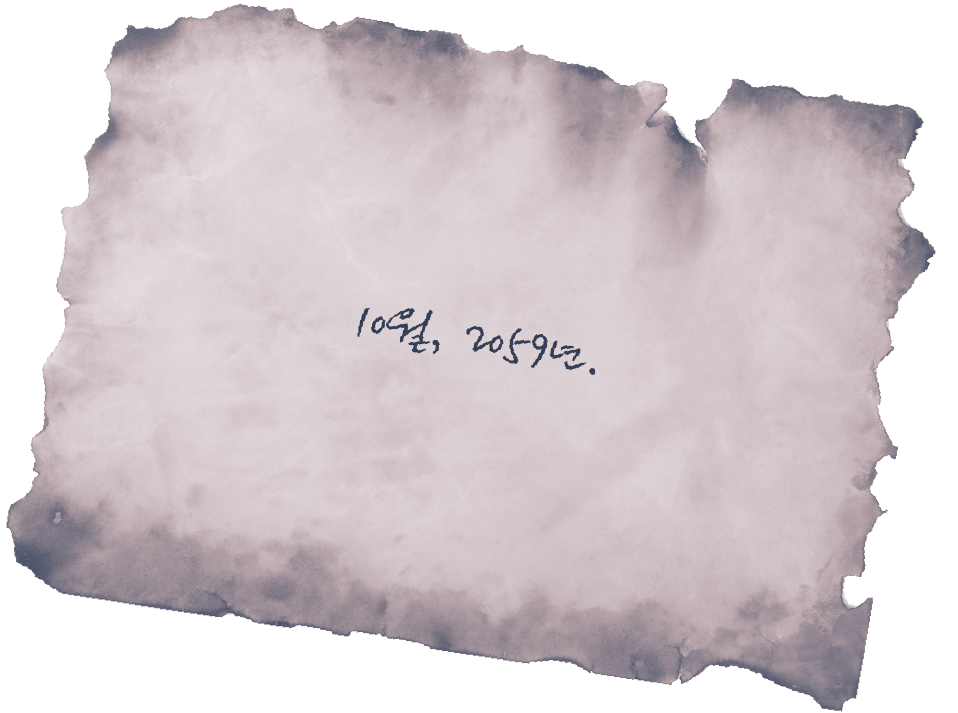 10월, 2059년.